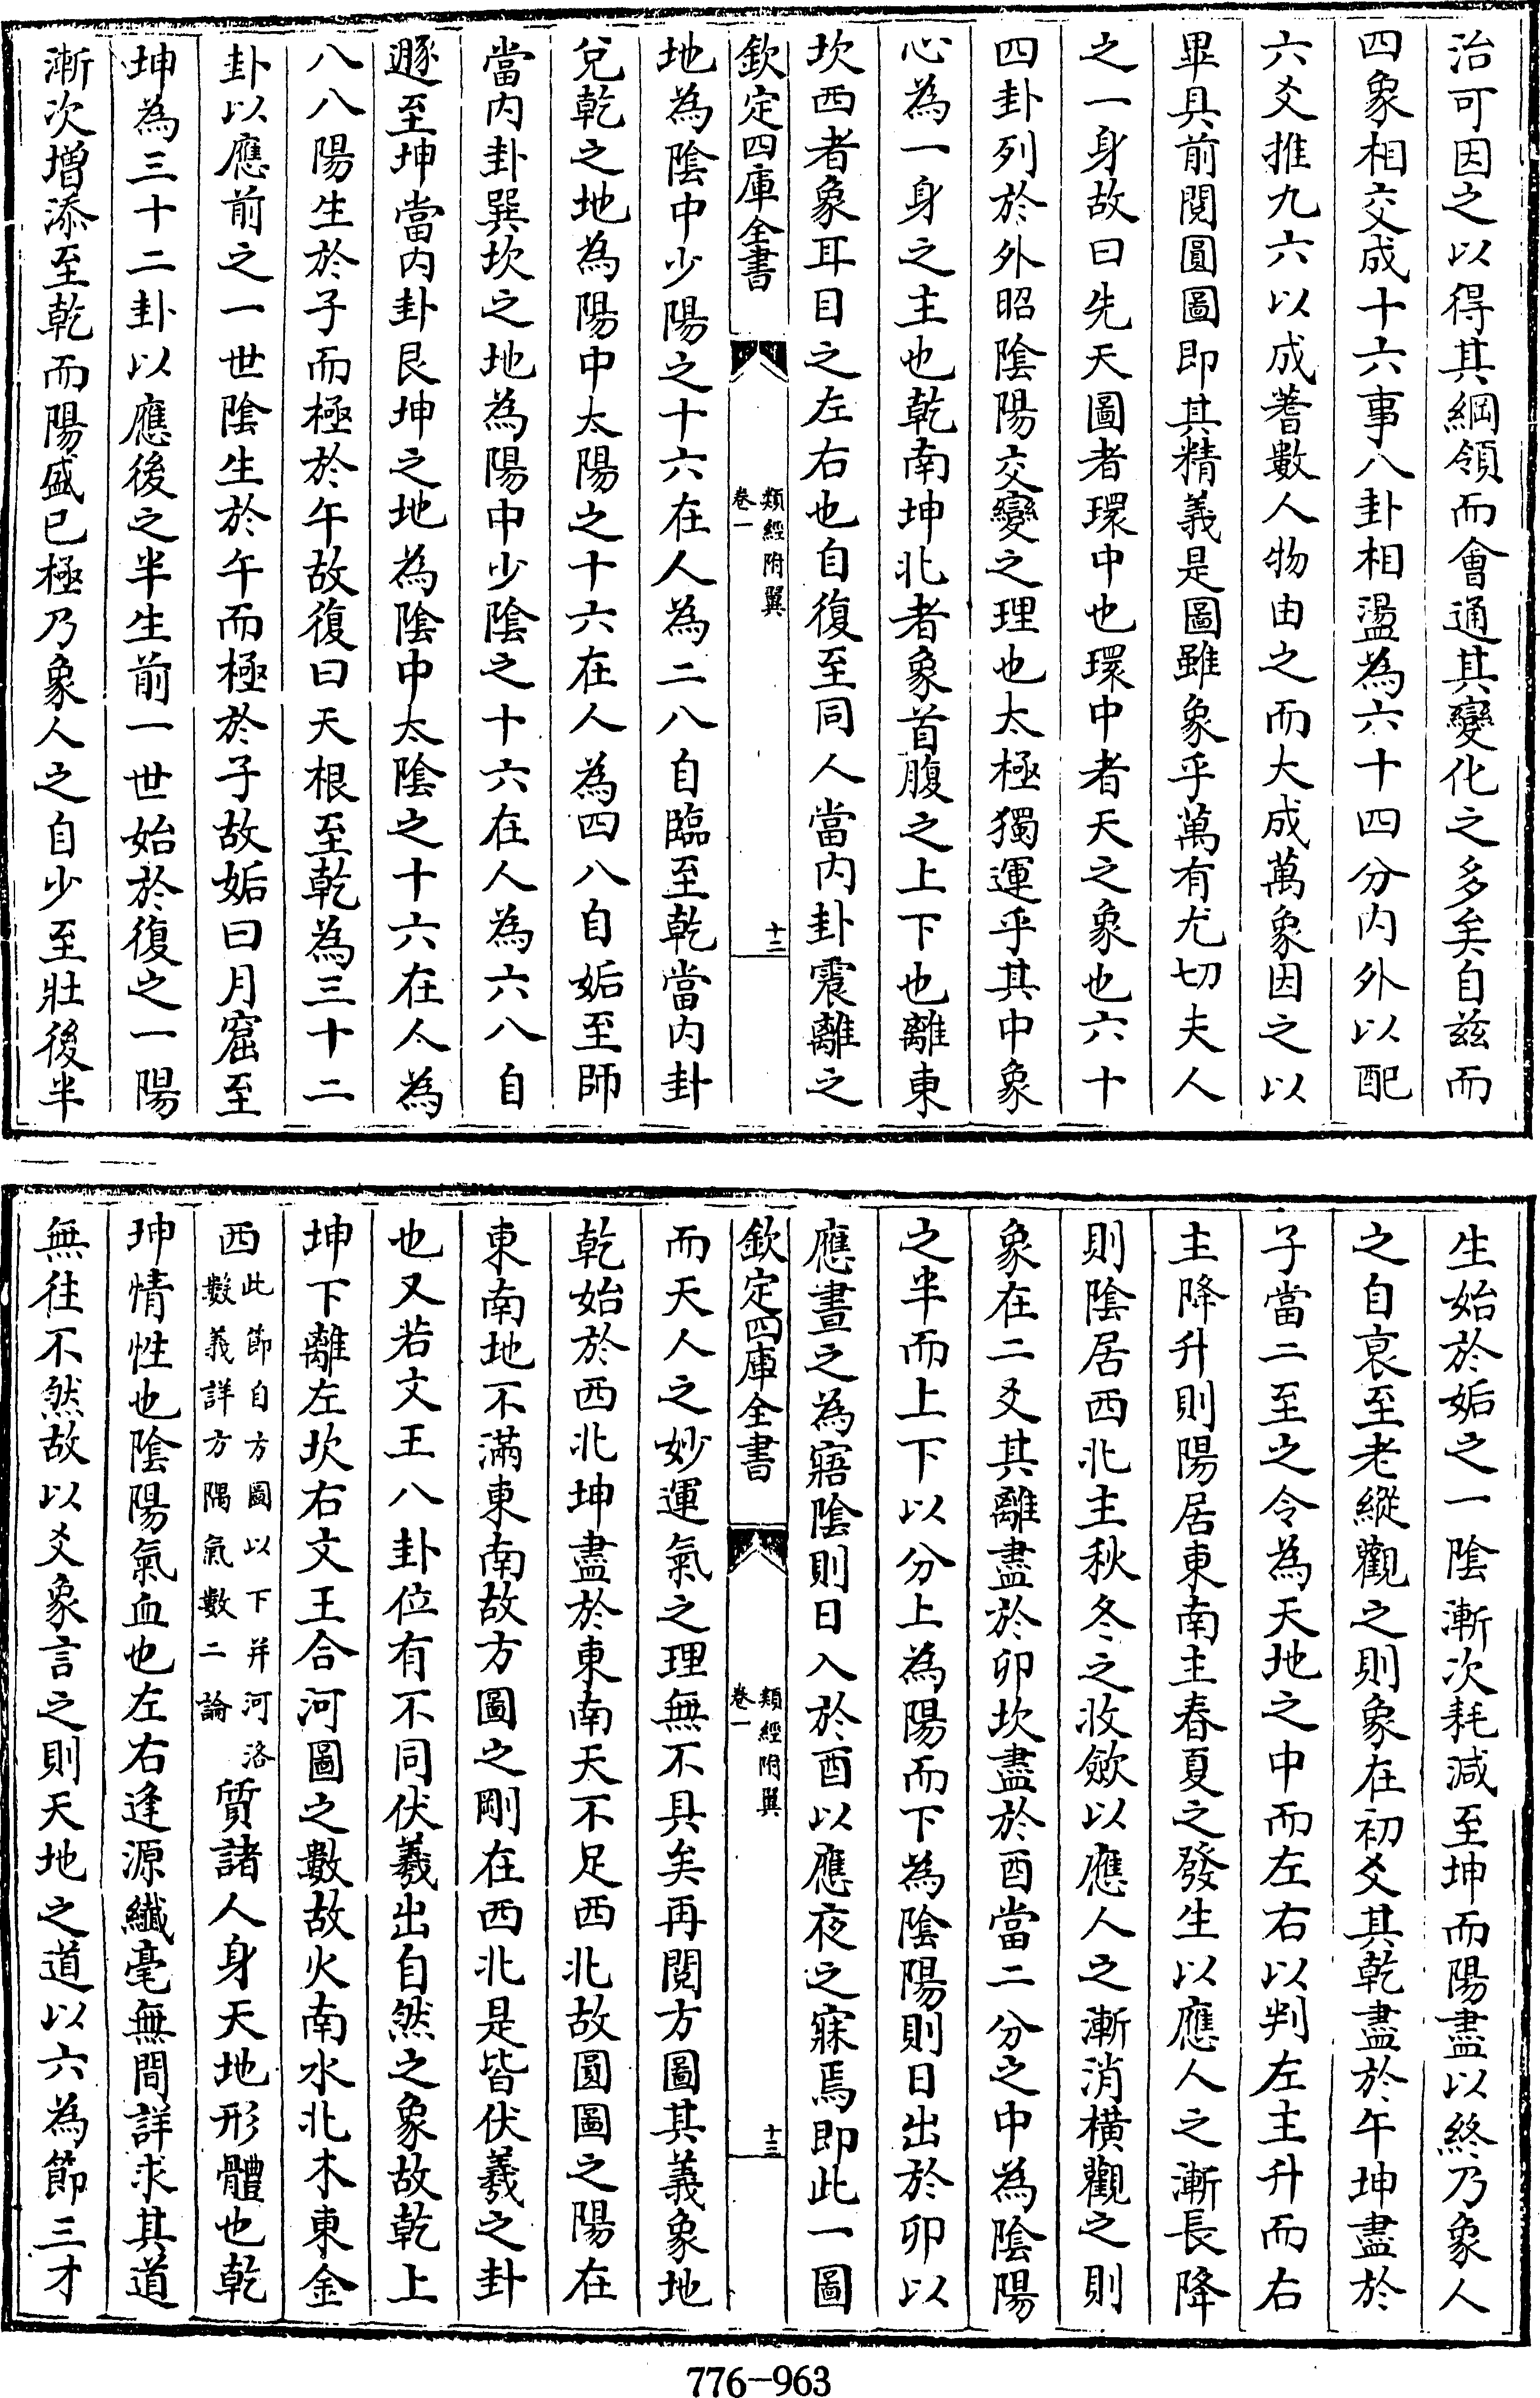 治可因之以得其綱領而會通其變化之多矣自茲而
四象相交成十六事八卦相盪為六十四分內外以配
六爻推九六以成蓍數人物由之而大成萬象因之以
畢具前閱圓圖即其精義是圖雖象乎萬有尤切夫人
之一身故曰先天圖者環中也環中者天之象也六十
四卦列於外昭陰陽交變之理也太極獨運乎其中象
心為一身之主也乾南坤北者象首腹之上下也離東
坎西者象耳目之左右也自復至同人當內卦震離之
欽定四庫全書
類經附翼
卷一
十二
地為陰中少陽之十六在人為二八自臨至乾當內卦
兌乾之地為陽中太陽之十六在人為四八自姤至師
當內卦巽坎之地為陽中少陰之十六在人為六八自
遯至坤當內卦艮坤之地為陰中太陰之十六在人為
八八陽生於子而極於午故復曰天根至乾為三十二
卦以應前之一世陰生於午而極於子故姤曰月窟至
坤為三十二卦以應後之半生前一世始於復之一陽
漸次增添至乾而陽盛已極乃象人之自少至壯後半
生始於姤之一陰漸次耗減至坤而陽盡以終乃象人
之自衰至老縱觀之則象在初爻其乾盡於午坤盡於
子當二至之令為天地之中而左右以判左主升而右
主降升則陽居東南主春夏之發生以應人之漸長降
則陰居西北主秋冬之收斂以應人之漸消橫觀之則
象在二爻其離盡於卯坎盡於酉當二分之中為陰陽
之半而上下以分上為陽而下為陰陽則日出於卯以
應晝之為寤陰則日入於酉以應夜之寐焉即此一圖
欽定四庫全書
類經附翼
卷一
十三
而天人之妙運氣之理無不具矣再閱方圖其義象地
乾始於西北坤盡於東南天不足西北故圓圖之陽在
東南地不滿東南故方圖之剛在西北是皆伏羲之卦
也又若文王八卦位有不同伏羲出自然之象故乾上
坤下離左坎右文王合河圖之數故火南水北木東金
西此節自方圖以下并河洛數義詳方隅氣數二論質諸人身天地形體也乾
坤情性也陰陽氣血也左右逢源纖毫無間詳求其道
無往不然故以爻象言之則天地之道以六為節三才
776-963